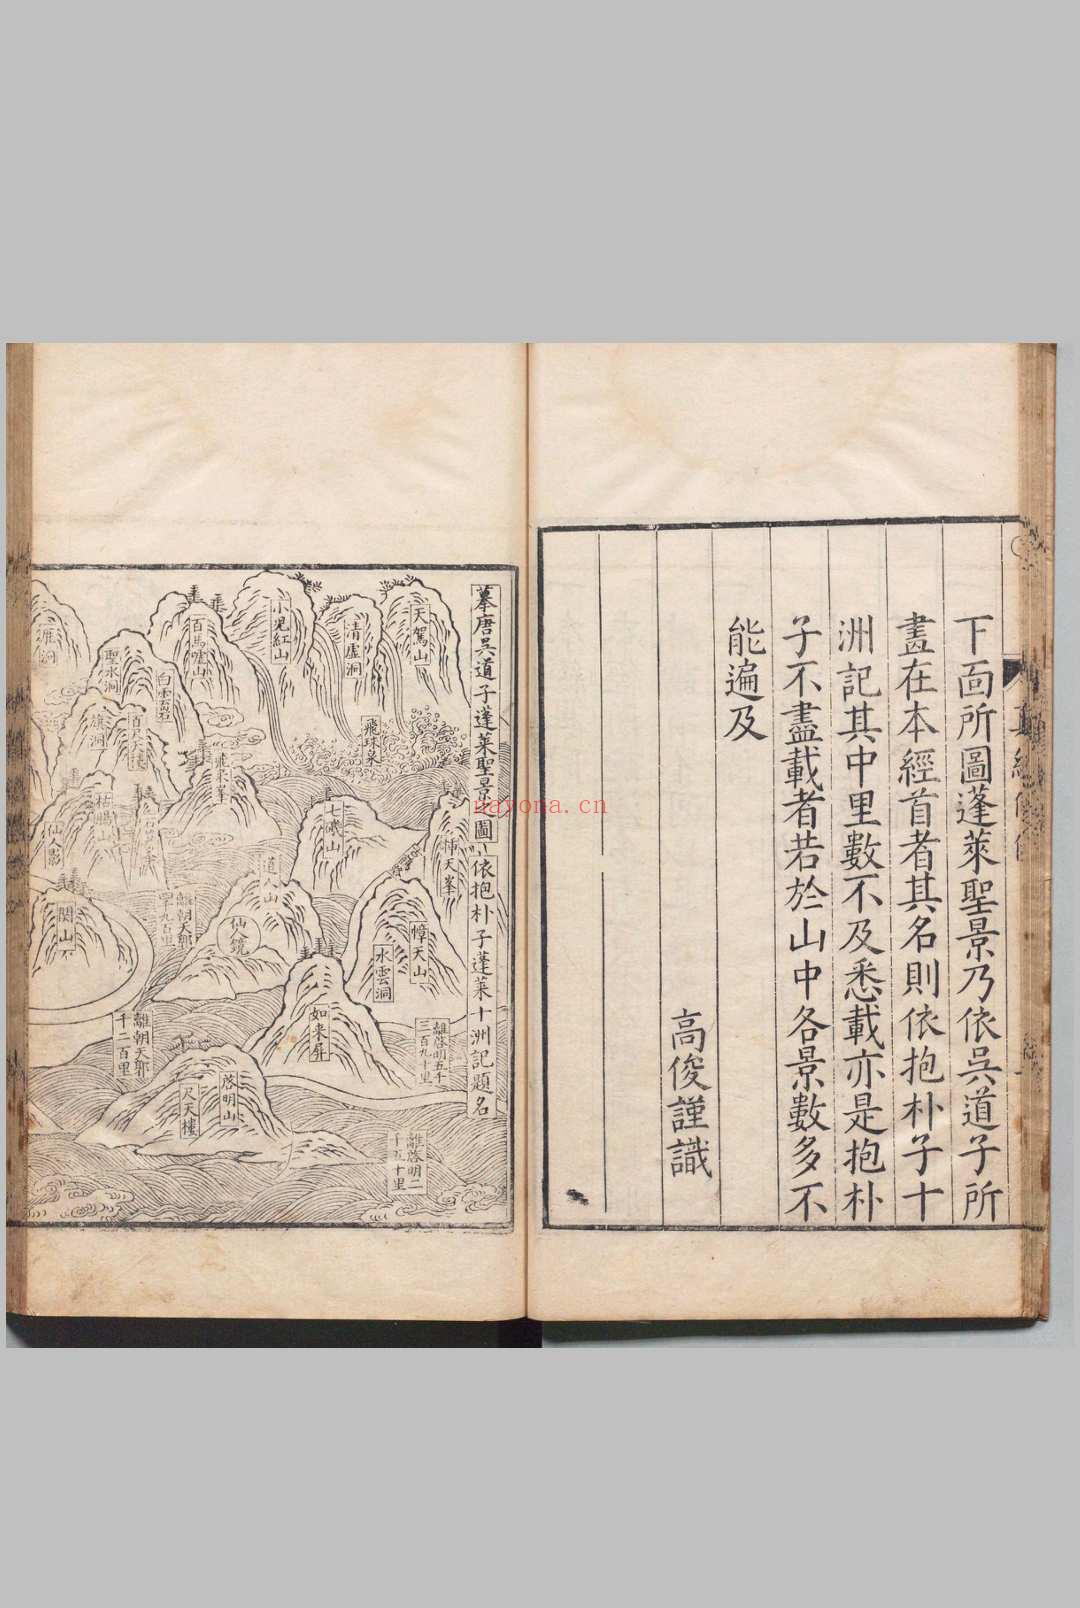 下面所圖蓬萊聖景乃依吳道子所
畫在本經首者其名則依抱朴子十
洲記其中里數不及悉載亦是抱朴
子不盡載者若於山中各景數多不
能遍及
高俊謹識
摹唐吳道子蓬萊聖景圖
依抱朴子蓬萊十洲記題名
天駕山
清虛洞
小兒紅山
百馬嘶山
聖水洞
白雲石
雁洞
旗洞
飛珠泉
飛來峯
七曦山
插天峯
仙人影
道人山
仙鏡
關山
幛天山
水雲洞
如來屏
離朝天郍
千二百里
離啓明五千
三百九十里
啓明山
尺天樓
離啓明二
千五十里
nayona.cn